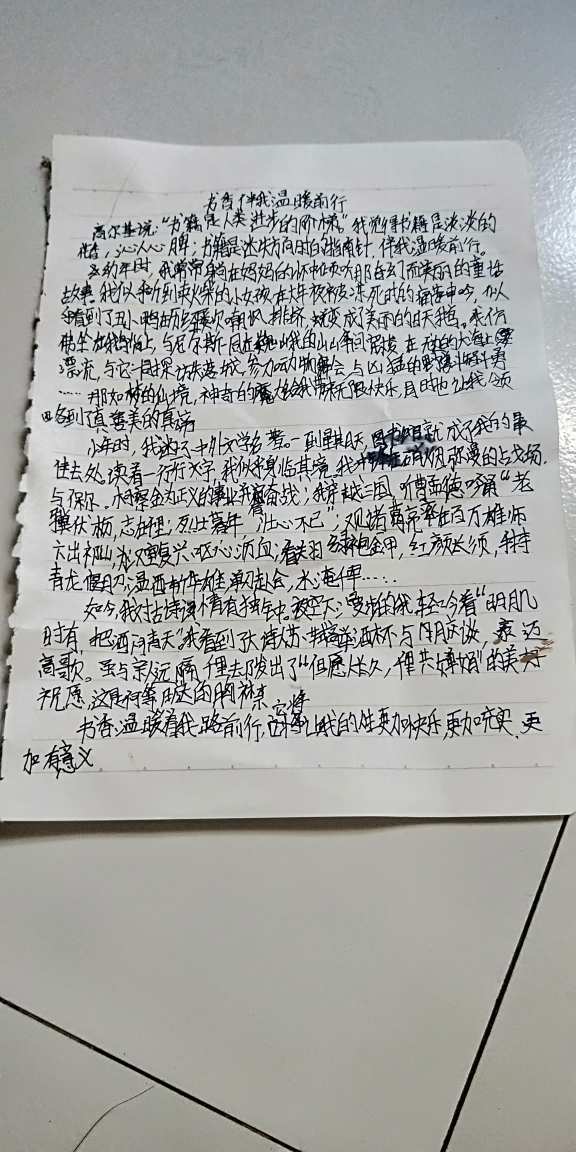 书香伴我温暖前行
高尔基说:“书籍是人类进步的阶梯。”我觉得书籍是淡淡的
花香,沁人心脾;书籍是迷失方向时的指南针,伴我温暖前行。
幼年时,我常常躺在妈妈的怀中倾听那奇幻而美丽的童话
故事。我似乎听到卖火柴的小女孩在大年夜被冻死时的痛苦呻吟,似
乎看到了丑小鸭历经嘲讽、排挤,蜕变成了美丽的白天鹅。我仿
佛坐在鹅背上,与尼尔斯一同在巍峨的山间
漂流,与它一同探访,参加动物集会,与凶猛的野兽斗智斗勇
……那如梦的仙境,神奇的魔幻给我带来无限快乐,且时也让我领
略到了真善美的真谛
少年时,我迷上中外文学名著。一到星期天,图书馆就成了我的最
佳去处,读着一行行文字,我似乎身临其境,我在硝烟弥漫的战场,
与保尔·柯察金为正义的事业并肩奋战;我穿越三国,听曹孟德吟诵“老
骥伏枥,志在千里;烈士暮年,壮心不已”;观诸葛亮率百万雄师
六出祁山,欲重复兴,呕心沥血;看关羽绿袍金甲,红颜长须,手持
青龙偃月刀,温酒斩华雄,单刀赴会,水淹七军……
如今,我对古诗词情有独钟。夜空下,漫步的我,轻吟着“明月几
时有,把酒问青天”我看到张怀民举酒杯与明月对谈,
高歌。虽与亲人远隔千里,却发出了“但愿人长久,千里共婵娟”的美好
祝愿,这是何等豁达的胸襟
书香温暖着我一路前行,它将让我的人生更加快乐,更加充实,更
加有意义